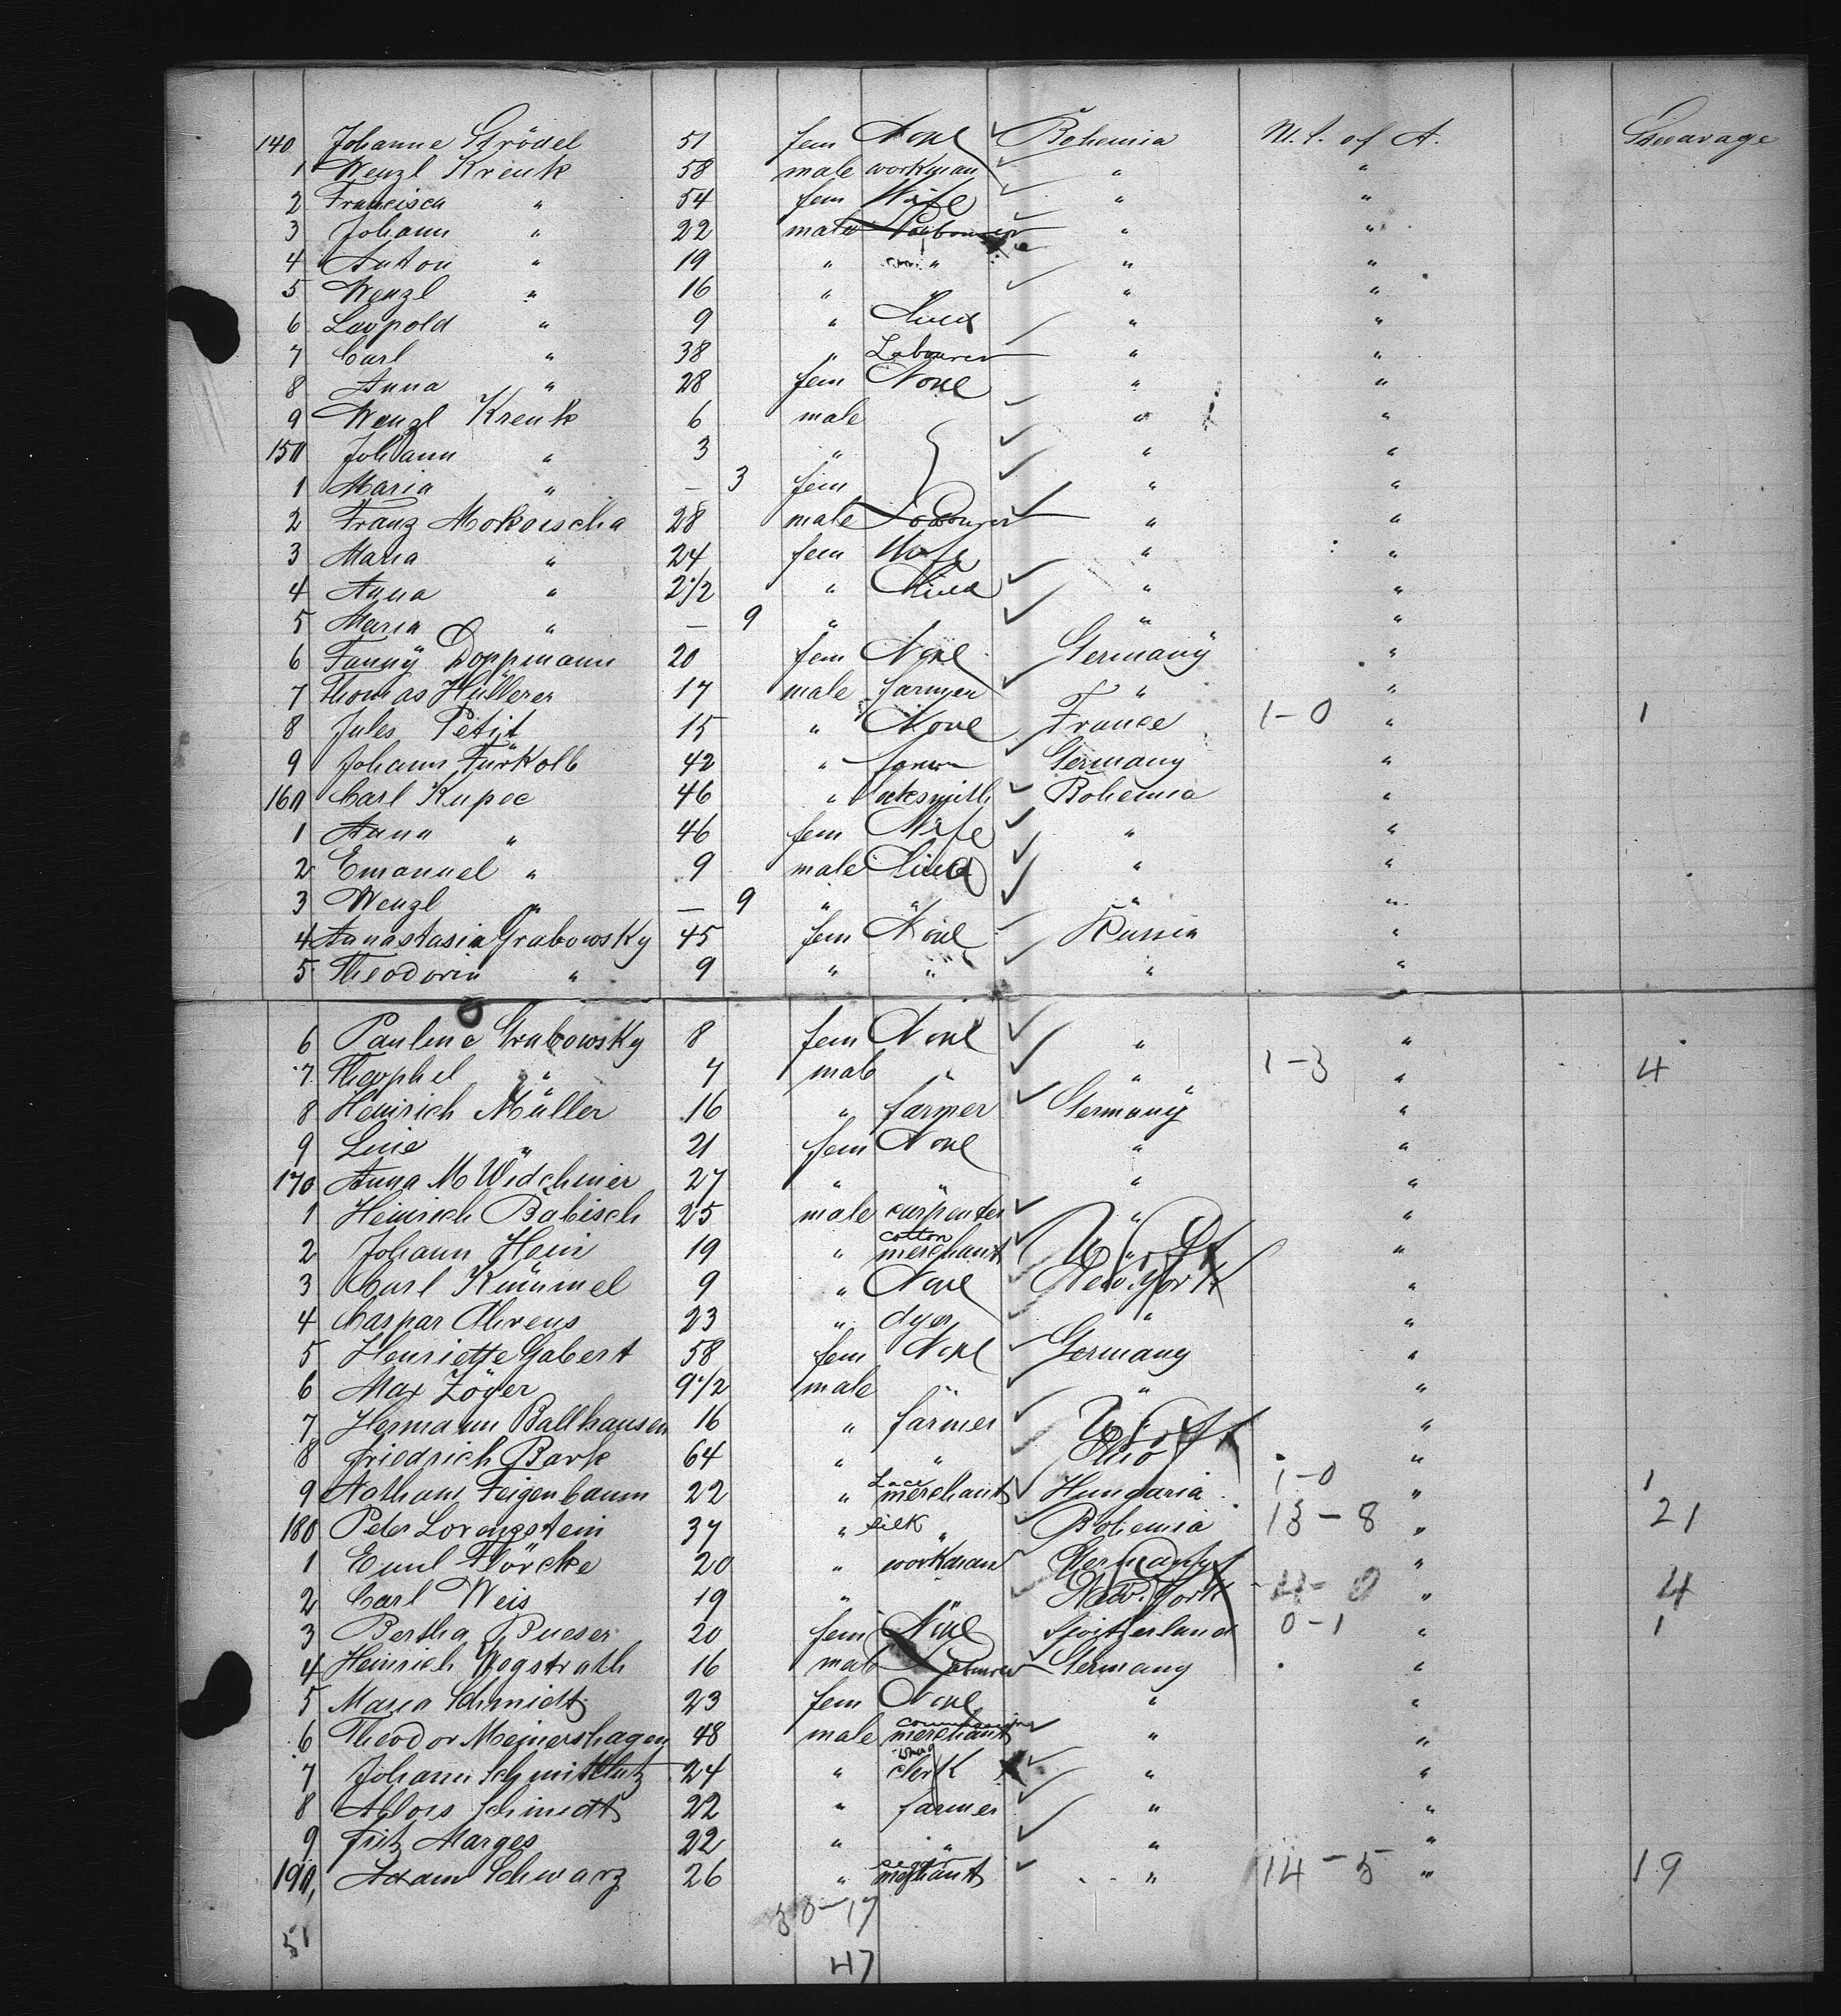 140 Johanne Strödel 51 fem None Bohemia U. S. of A. Steavarage
1 Wenzl Krenk 58 male workman " "
2 Francisca " 54 fem Wife " "
3 Johann " 22 male Labourer " "
4 Anton " 19 " " " "
5 Wenzl " 16 " " " "
6 Leopold " 9 " Child " "
7 Carl " 38 " Labourer " "
8 Anna " 28 fem None " "
9 Wenzl Krenk 6 male " "
150 Johann " 3 " " "
1 Maria " — 3 fem " "
2 Franz Mokoischa 28 male Labourer " "
3 Maria " 24 fem Wife " "
4 Anna " 2 1/2 " Child " "
5 Maria " — 9 " " " "
6 Fanny Doppmann 20 fem None Germany "
7 Thomas Hüllerer 17 male farmer " "
8 Jules Petijt 15 " None France 1-0 " 1
9 Johann Fürkolb 42 " farmer Germany "
160 Carl Kupec 46 " locksmith Bohemia "
1 Anna " 46 fem Wife " "
2 Emanuel " 9 male Child " "
3 Wenzl " — 9 " " " "
4 Annastasia Grabowsky 45 fem None Russia "
5 Theodorin " 9 " " " "
6 Pauline Grabowsky 8 fem None " "
7 Theophel " 7 male " " 1-3 " 4
8 Heinrich Müller 16 " farmer Germany "
9 Line " 21 fem None " "
170 Anna M Widchmer 27 " " " "
1 Heinrich Babisch 25 male carpenter " "
2 Johann Hein 19 " cotton merchant " "
3 Carl Kümmel 9 " None New York "
4 Caspar Ahrens 23 " dyer " "
5 Henriette Gabert 58 fem None Germany "
6 Max Zöger 9 1/2 male " " "
7 Hermann Ballhausen 16 " farmer " "
8 Friedrich Bark 64 " " Ohio "
9 Nathan Feigenbaum 22 " Lace merchant Hungaria 1-0 " 1
180 Peter Lorenzstein 37 " silk " Bohemia 13-8 " 21
1 Emil Flörcke 20 " workman Germany "
2 Carl Weis 19 " " New York 4-0 " 4
3 Bertha Pueser 20 fem None Switzerland 0-1 " 1
4 Heinrich Wogstrath 16 male Labourer Germany "
5 Maria Schmidt 23 fem None " "
6 Theodor Meinershagen 48 male merchant " "
7 Johann 24 " clerk " "
8 Alois Schmidt 22 " farmer " "
9 Fritz Marges 22 " " " "
190 Adam Schwarz 26 " merchant " 14-5 " 19
30-17
51
47